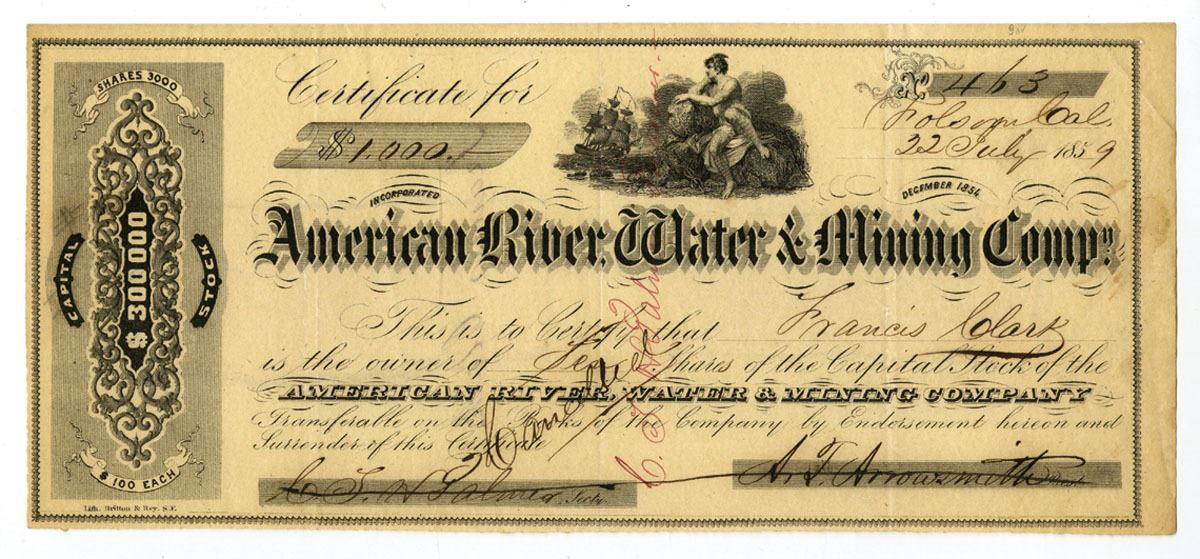 SHARES 3000
CAPITAL STOCK
$ 300 000
$ 100 EACH
Lith. Britton & Rey. S.F.
Certificate for
$1,000.
No 463
Folsom Cal.
22 July 1859
INCORPORATED DECEMBER 1854
American River, Water & Mining Compy.
This is to Certify that Francis Clark
is the owner of Shares of the Capital Stock of the
AMERICAN RIVER, WATER & MINING COMPANY
Transferable on the Books of the Company by Endorsement hereon and
Surrender of this Certificate
Cancelled
C. T. H. Palmer Secty.
A. T. Arrowsmith Prest.
C. T. H. Palmer